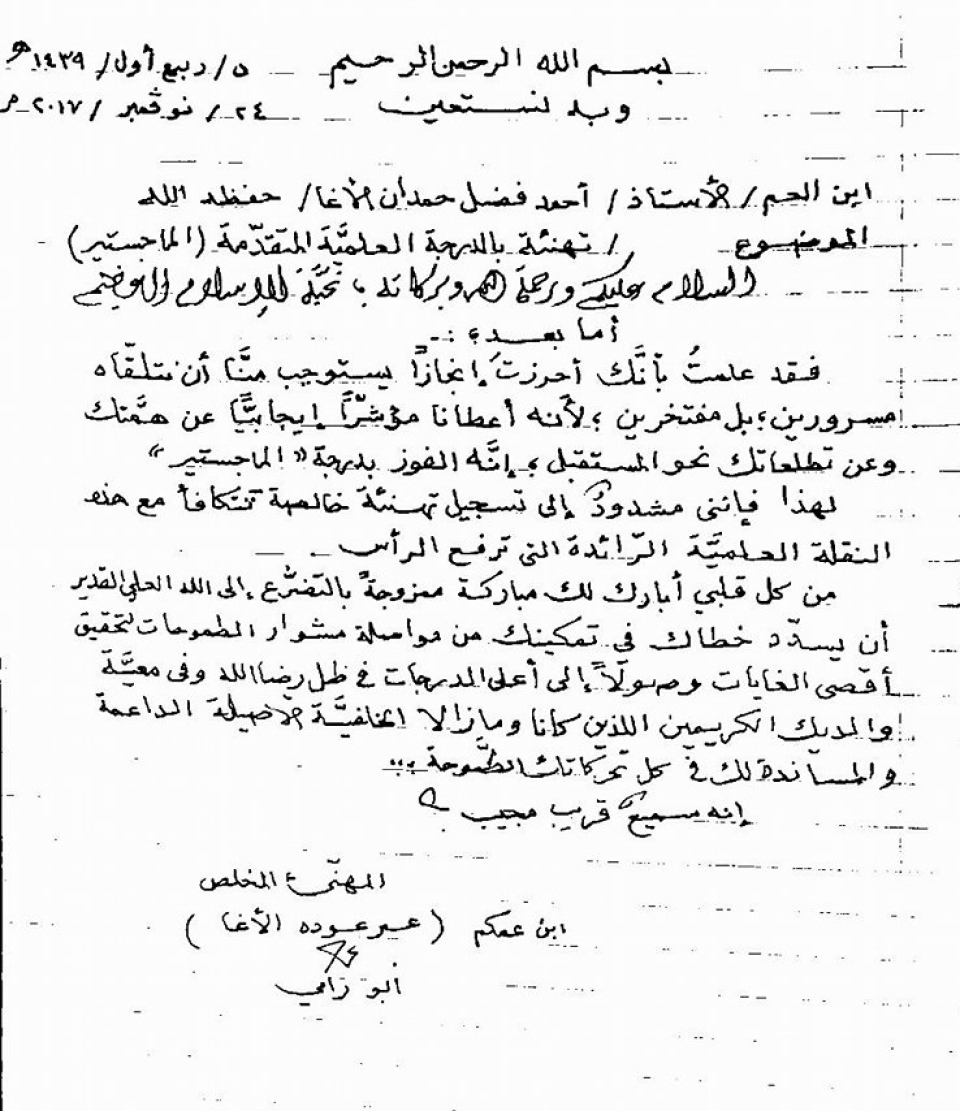 بسم الله الرحمن الرحيم ٥/ ربيع أول/ ١٤٣٩هـ
وبه نستعين ٢٤/ نوفمبر / ٢٠١٧م
ابن العم/ الأستاذ / أحمد فضل حمدان الأغا/ حفظه الله
الموضوع / تهنئة بالدرجة العلميَّة المتقدّمة (الماجستير)
السلام عليكم ورحمة الله وبركاته ؛ تحيَّة الإسلام العظيم
أما بعد ؛ :-
فقد علمتُ بأنَّك أحرزتَ إنجازاً يستوجب منَّا أن نتلقّاه
مسرورين ؛ بل مفتخرين ؛ لأنه أعطانا مؤشّراً إيجابيَّاً عن همَّتك
وعن تطلعاتك نحو المستقبل ؛ إنَّه الفوز بدرجة "الماجستير"
لهذا فإنني مشدودٌ إلى تسجيل تهنئة خالصة تتكافأ مع هذه
النقلة العلميَّة الرّائدة التي ترفع الرأس .
من كل قلبي أبارك لك مباركة ممزوجةً بالتضرُّع إلى الله العلي القدير
أن يسدّد خطاك في تمكينك من مواصلة مشوار الطموحات لتحقيق
أقصى الغايات وصولاً إلى أعلى الدرجات في ظل رضا الله وفي معيَّة
والديك الكريمين اللذين كانا وما زالا الخلفيَّة الأصيلة الداعمة
والمساندة لك في كل تحركاتك الطَّموحة ..
إنه سميعٌ قريب مجيب
المهنّئ المخلص
ابن عمكم ( عوده الأغا )
أبو رامي